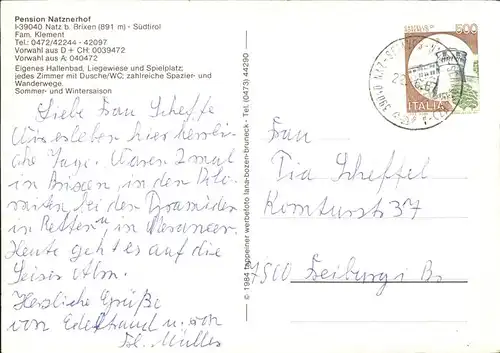 Pension Natznerhof
I-39040 Natz b. Brixen (891 m) - Südtirol
Fam. Klement
Tel.: 0472/42244 - 42097
Vorwahl aus D + CH: 0039472
Vorwahl aus A: 040472
Eigenes Hallenbad, Liegewiese und Spielplatz;
jedes Zimmer mit Dusche/WC; zahlreiche Spazier- und
Wanderwege.
Sommer- und Wintersaison
Liebe Frau Scheffe
Wir erleben hier herrli-
che Tage. Waren 2 mal
in Brixen, in den Dolo-
miten, bei den Pyramiden
in Ritten u. in
Heute geht es auf die
Seiser Alm.
Herzliche Grüße
von Edeltraud u. von
Müller
© 1984 tappeiner werbefoto lana-bozen-bruneck - Tel. (0473) 44290
500
ITALIA
39040 NAZ-
Frau
Pia Scheffel
Komturstr 37
7800 Freiburg i Br